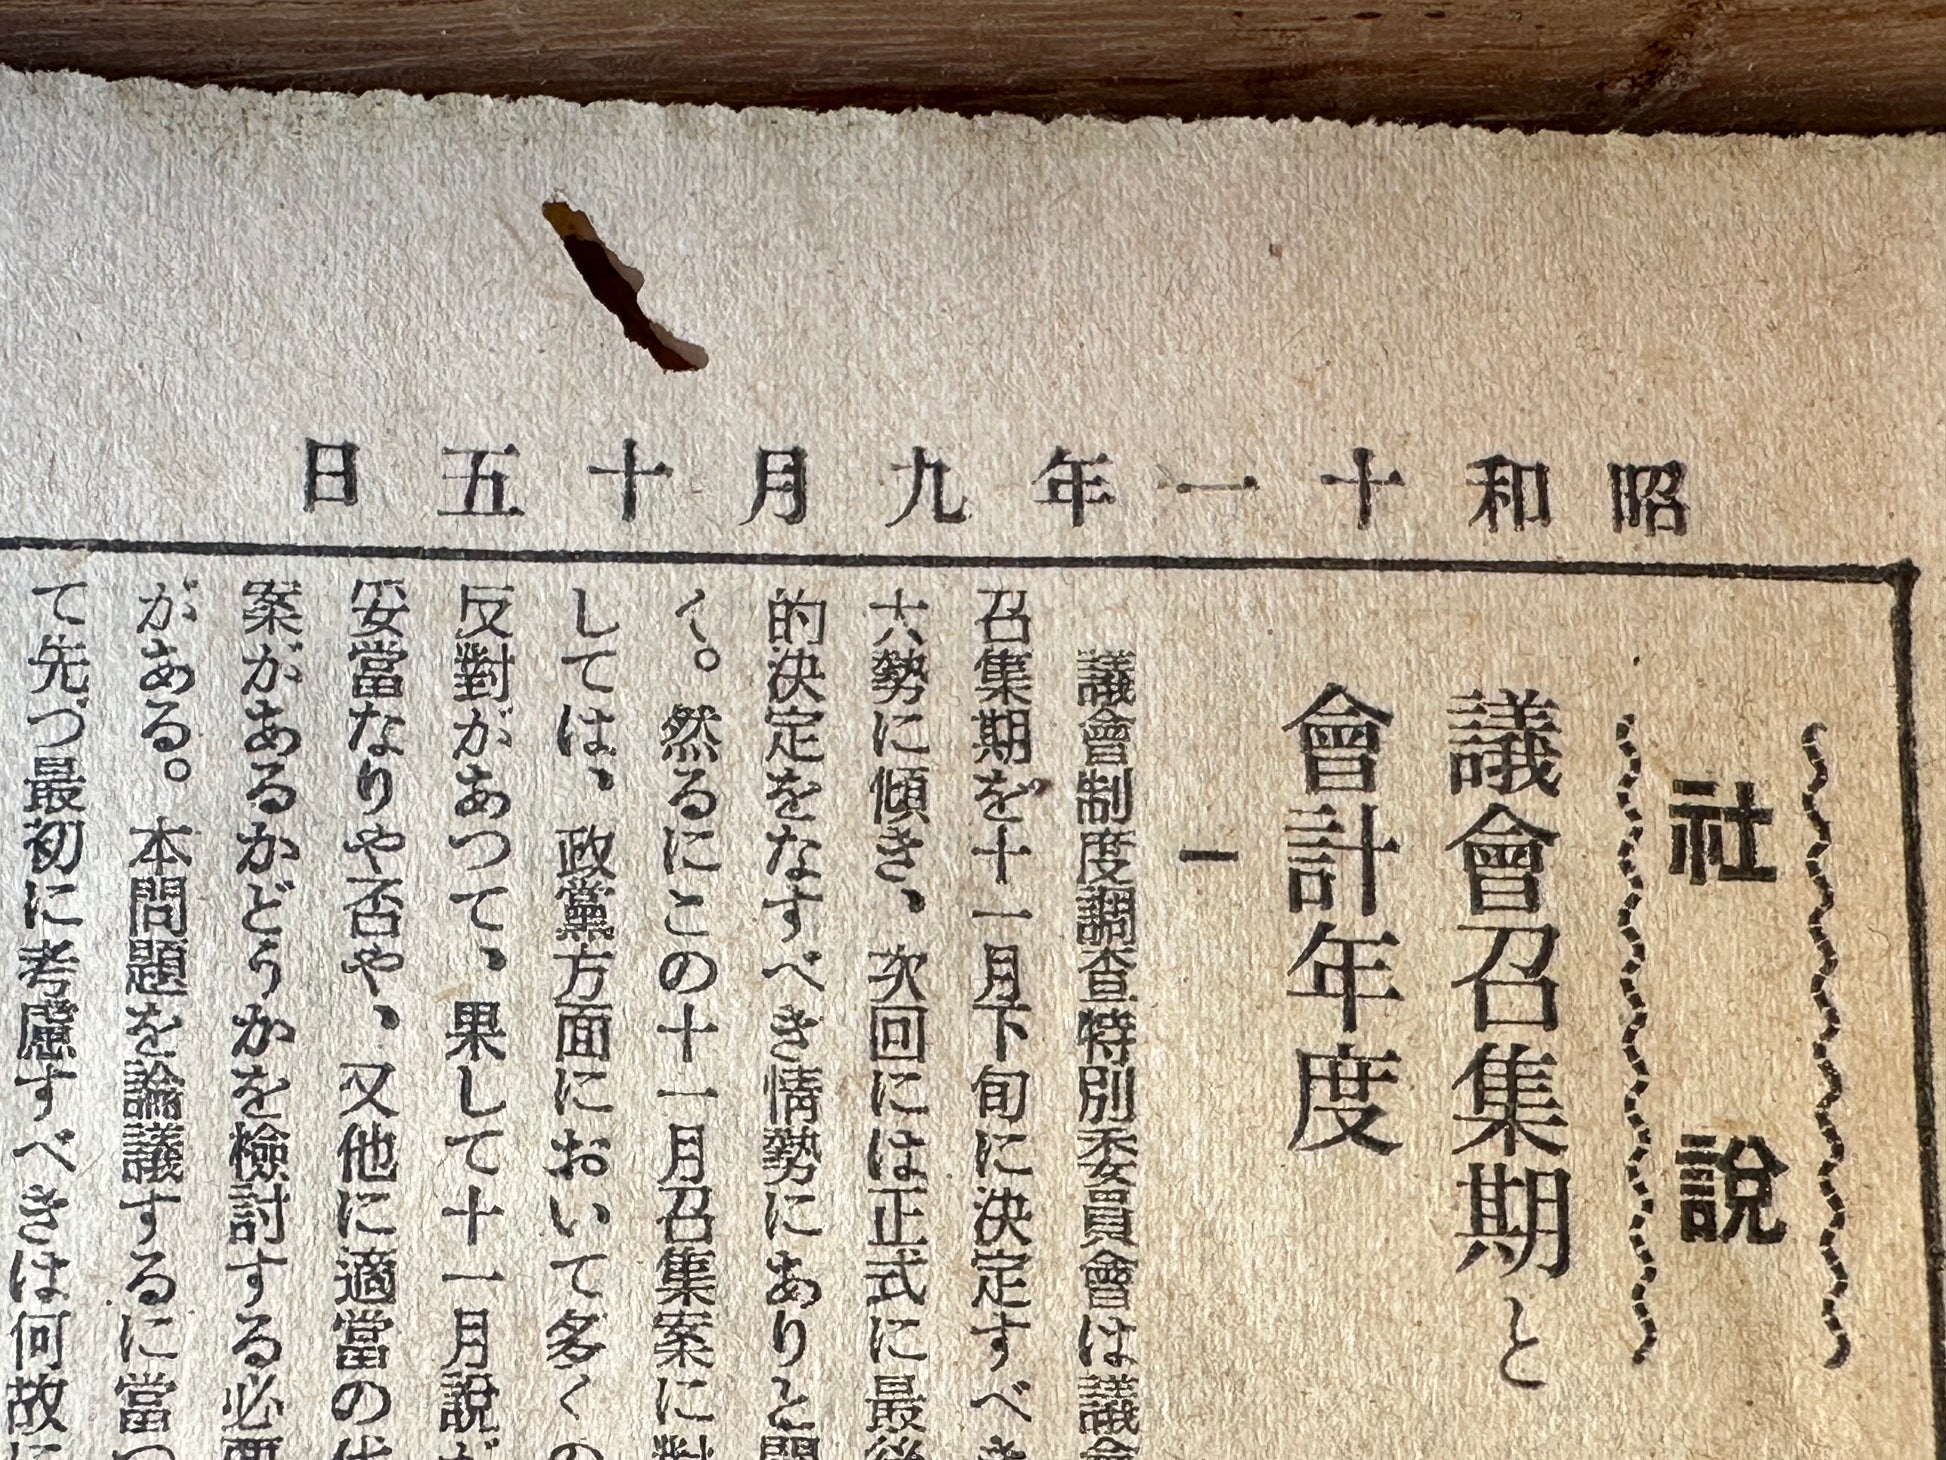 昭和十一年九月十五日
社說
議會召集期と
會計年度
一
議會制度調査特別委員會は議會
召集期を十一月下旬に決定すべき
大勢に傾き、次回には正式に最後
的決定をなすべき情勢にありと聞
く。然るにこの十一月召集案に對
しては、政黨方面において多くの
反對があつて、果して十一月說が
妥當なりや否や、又他に適當の代
案があるかどうかを檢討する必要
がある。本問題を論議するに當つ
て先づ最初に考慮すべきは何故に